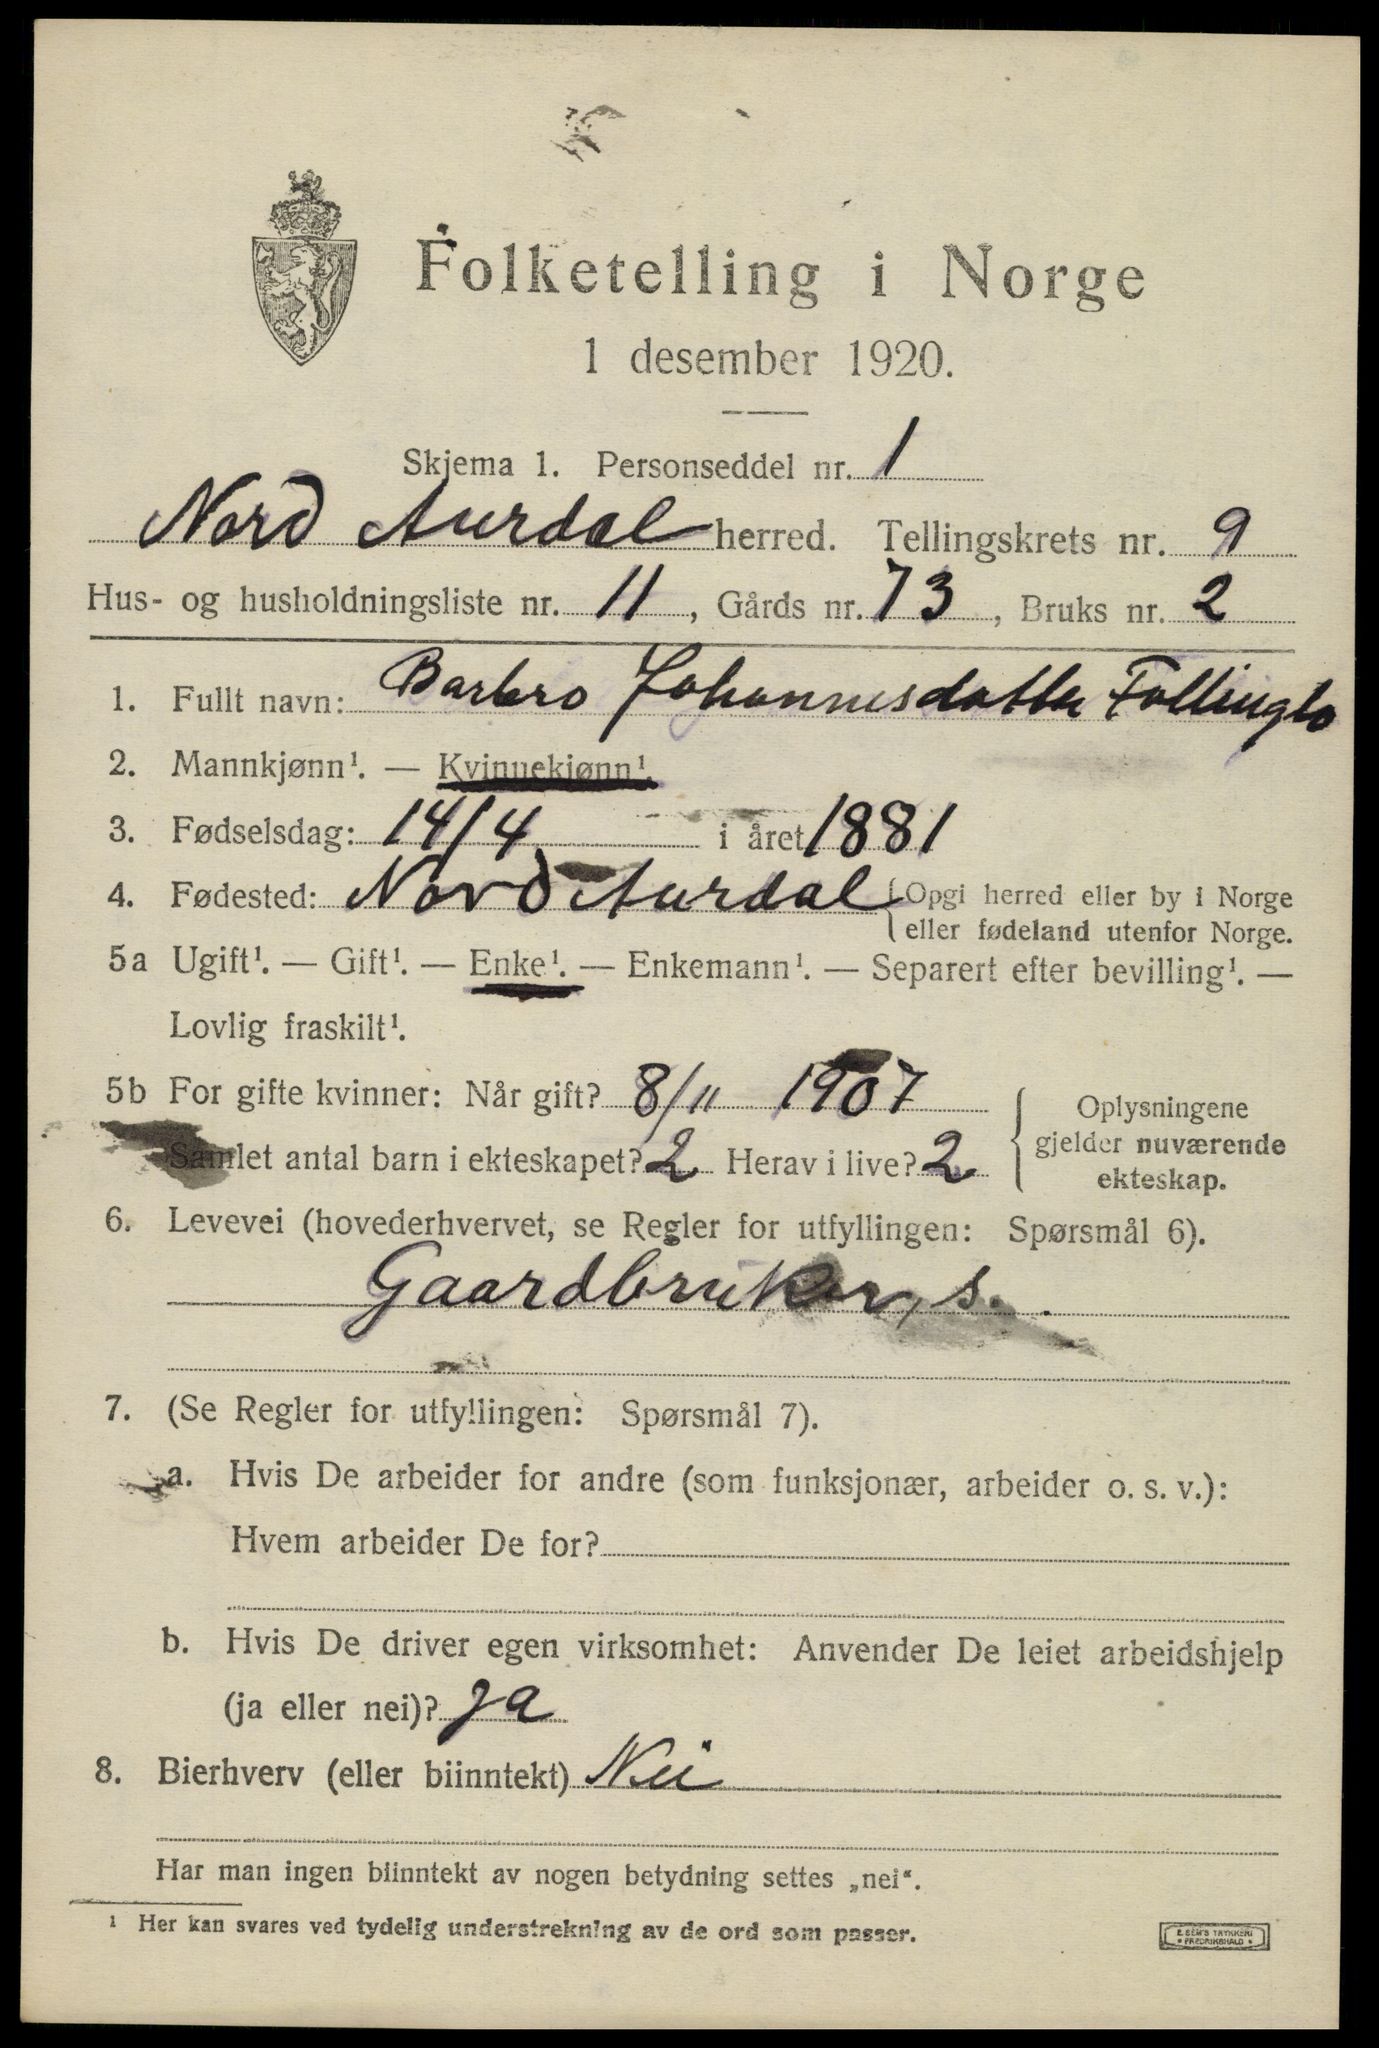 Folketelling i Norge
1 desember 1920.
Skjema 1. Personseddel nr. 1
Nord Aurdal herred. Tellingskrets nr. 9
Hus- og husholdningsliste nr. 11, Gårds nr. 73, Bruks nr. 2
1. Fullt navn: Barbro Johannesdatter Follinglo
2. Mannkjønn¹. — Kvinnekjønn¹.
3. Fødselsdag: 14/4 i året 1881
4. Fødested: Nord Aurdal {Opgi herred eller by i Norge
eller fødeland utenfor Norge.
5a Ugift¹. — Gift¹. — Enke¹. — Enkemann¹. — Separert efter bevilling¹. —
Lovlig fraskilt¹.
5b For gifte kvinner: Når gift? 8/11 1907
Samlet antal barn i ekteskapet? 2 Herav i live? 2
Oplysningene
gjelder nuværende
ekteskap.
6. Levevei (hovederhvervet, se Regler for utfyllingen: Spørsmål 6).
Gaardbruker, s.
7. (Se Regler for utfyllingen: Spørsmål 7).
a. Hvis De arbeider for andre (som funksjonær, arbeider o. s. v.):
Hvem arbeider De for?
b. Hvis De driver egen virksomhet: Anvender De leiet arbeidshjelp
(ja eller nei)? ja
8. Bierhverv (eller biinntekt) Nei
Har man ingen biinntekt av nogen betydning settes „nei“.
¹ Her kan svares ved tydelig understrekning av de ord som passer.
E. SEM'S TRYKKERI
• FREDRIKSHALD •